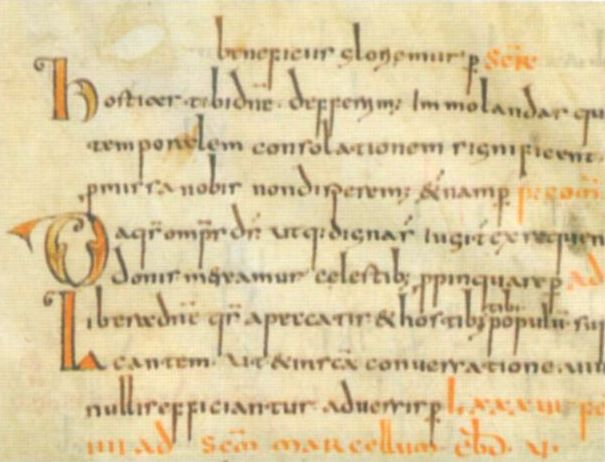 beneficiis gloriemur p secr
Hostias tibi dne deferim; Immolandas qui
temporalem consolationem significent
pmissa nobis non disperem; & nam p
Da qs omps ds ut qi dignar
donis in celestib; ppinquare p ad
Libera dne qs a peccatis & hostib; tibi populu sup
cantem. Ut & in sca conversatione
nullis efficiantur adversis p Lxxxiii
iiii ad scm marcellum ebd. v.